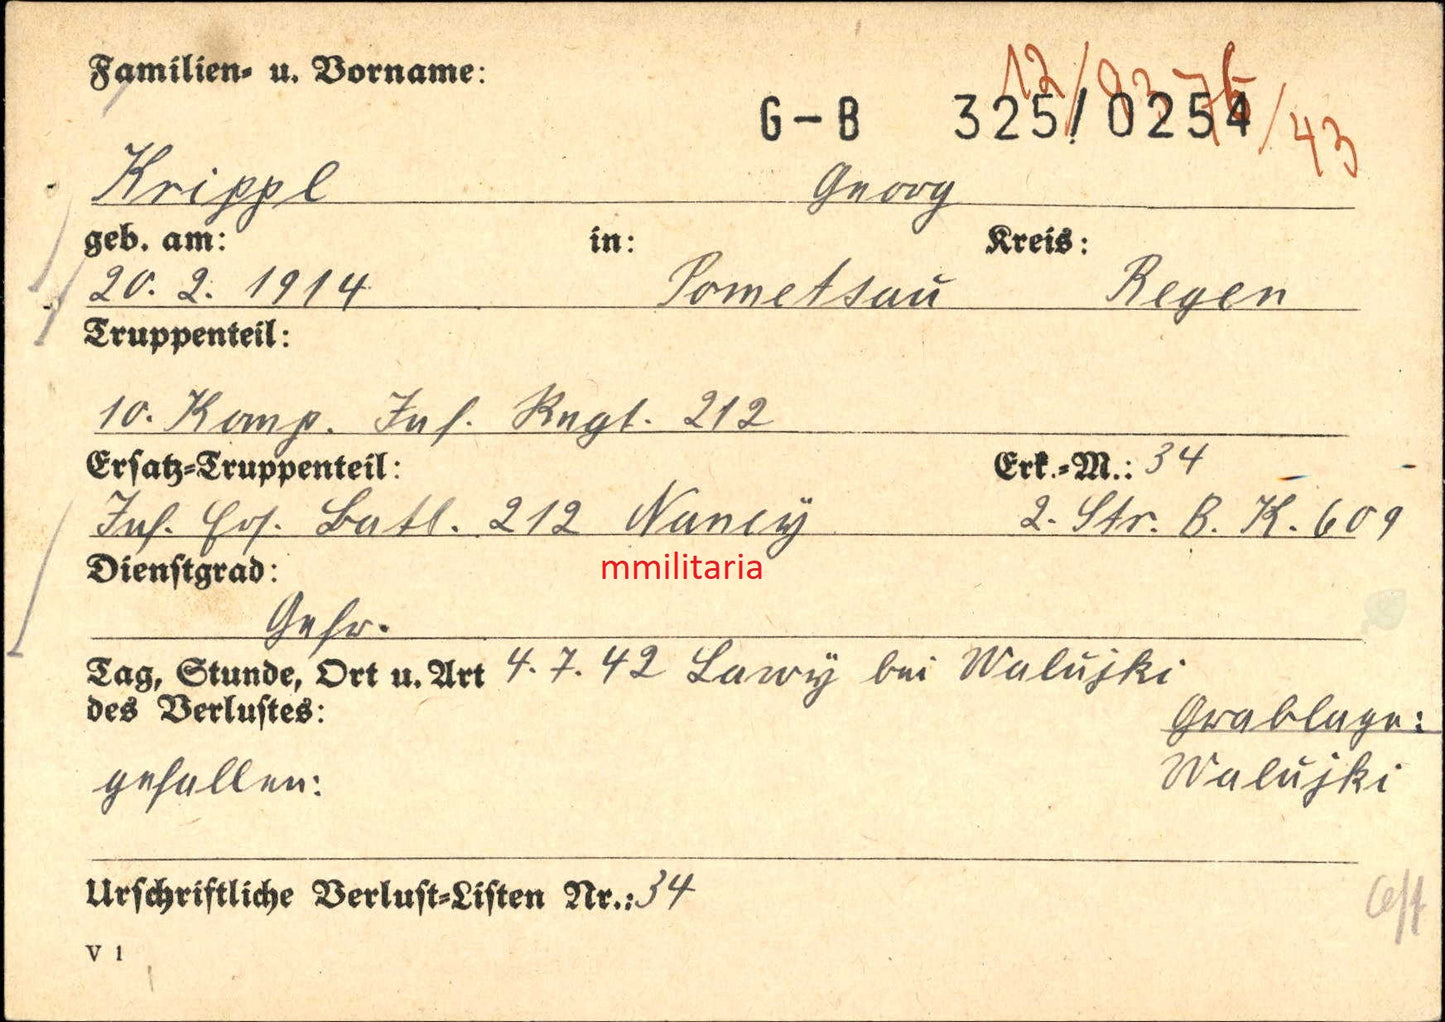 Familien- u. Vorname:
12/
/43
G-B 325/0254
Krippl Georg
geb. am: in: Kreis:
20. 2. 1914 Pometsau Regen
Truppenteil:
10. Komp. Inf. Regt. 212
Ersatz-Truppenteil: Erk.-M.: 34
Inf. Ers. Batl. 212 Nancy 2. Str. B. K. 609
Dienstgrad:
mmilitaria
Gefr.
Tag, Stunde, Ort u. Art 4. 7. 42 Lawy bei Walujki
des Verlustes:
Grablage:
gefallen: Walujki
Urschriftliche Verlust-Listen Nr.: 34
V 1